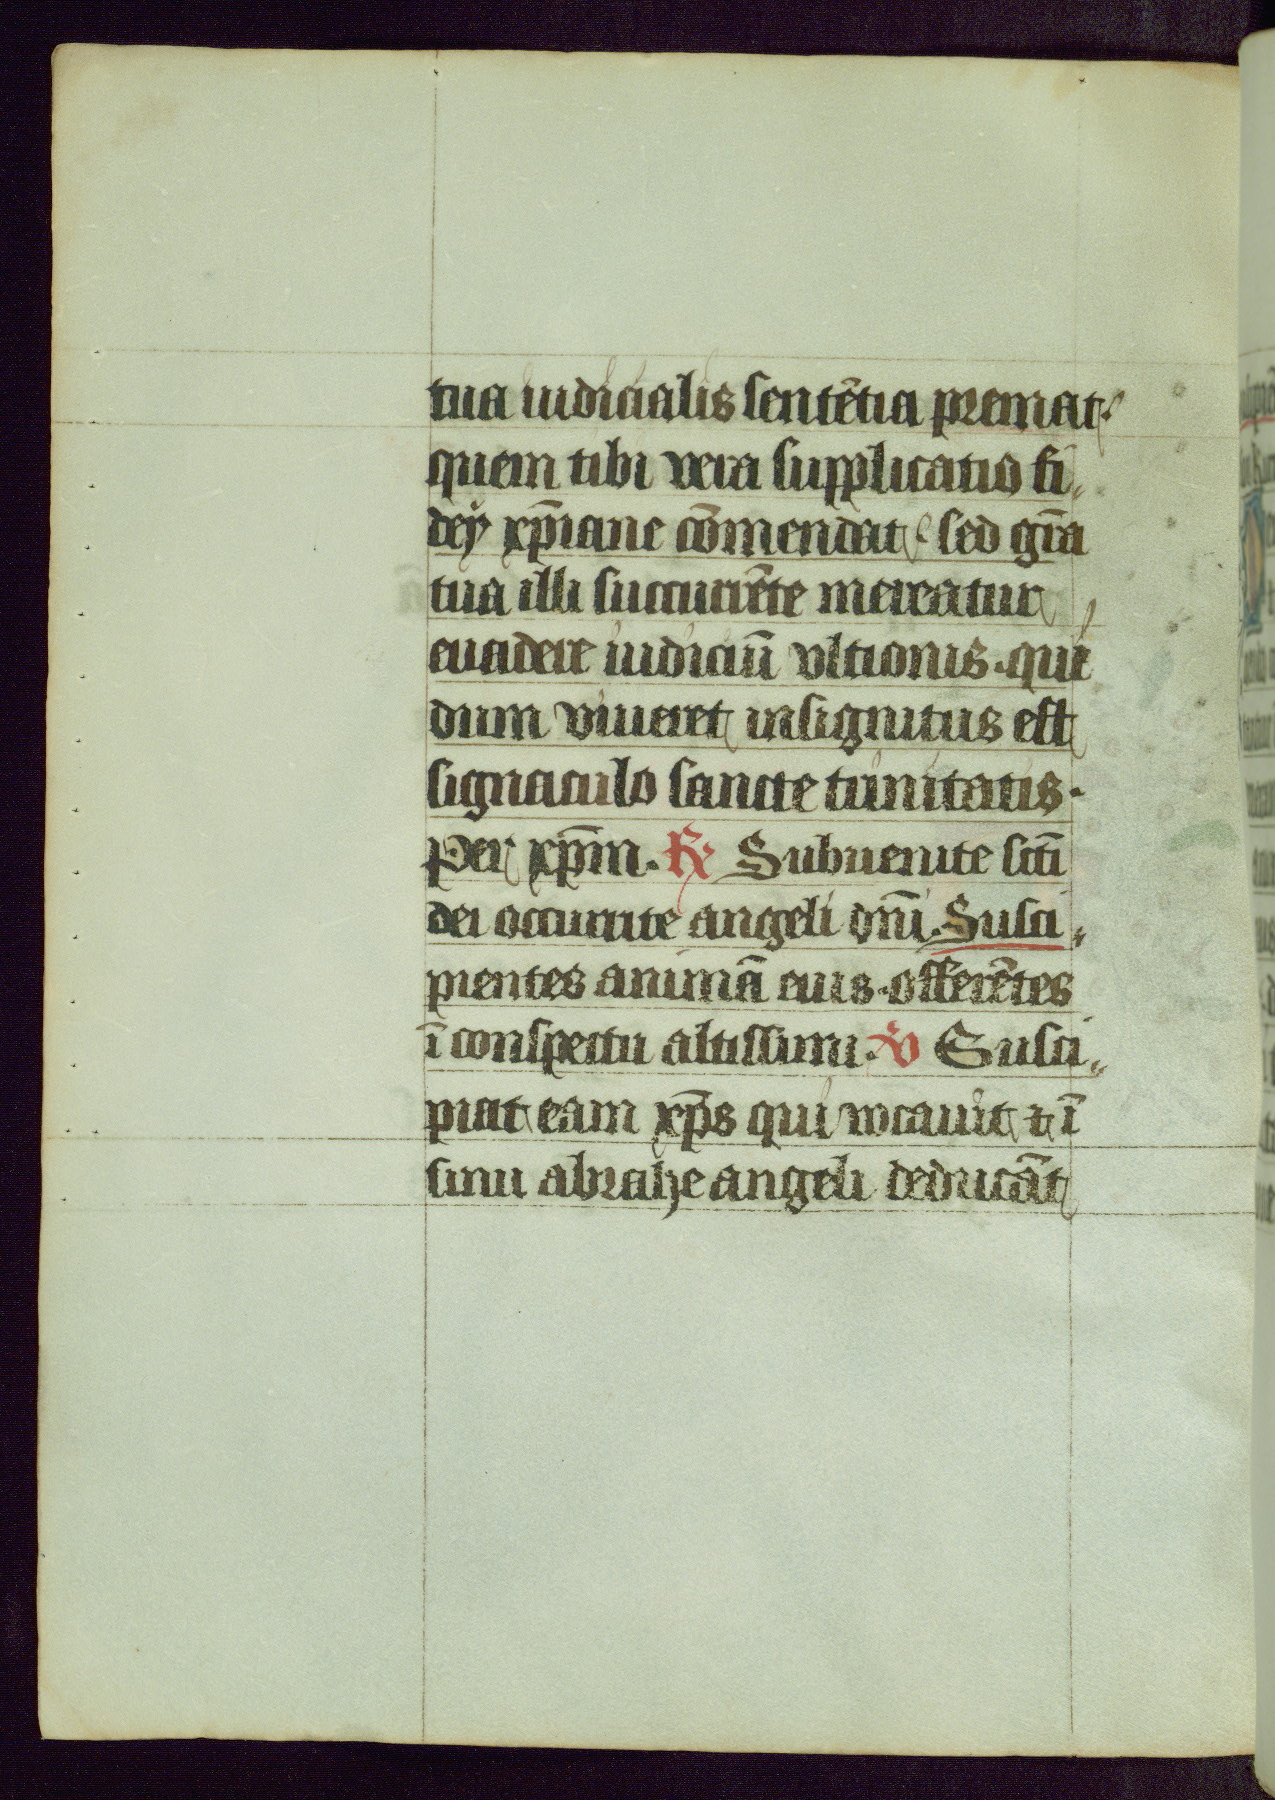 tua iudicialis sentētia premat·
quem tibi vera supplicatio fi„
deÿ xp̄iane cōmendat· sed gr̄a
tua illi succurrēte mereatur
euadere iudiciū vltionis· qui
dum viueret insignitus est
signaculo sancte trinitatis·
Per xp̄m. ℟ Subuenite sct̄i
dei occurrite angeli dn̄i. Susci„
pientes animā eius· offerētes
ī conspectu altissimi. ℣ Susci„
piat eam xp̄s qui vocauit ⁊ ī
sinu abrahe angeli deducāt